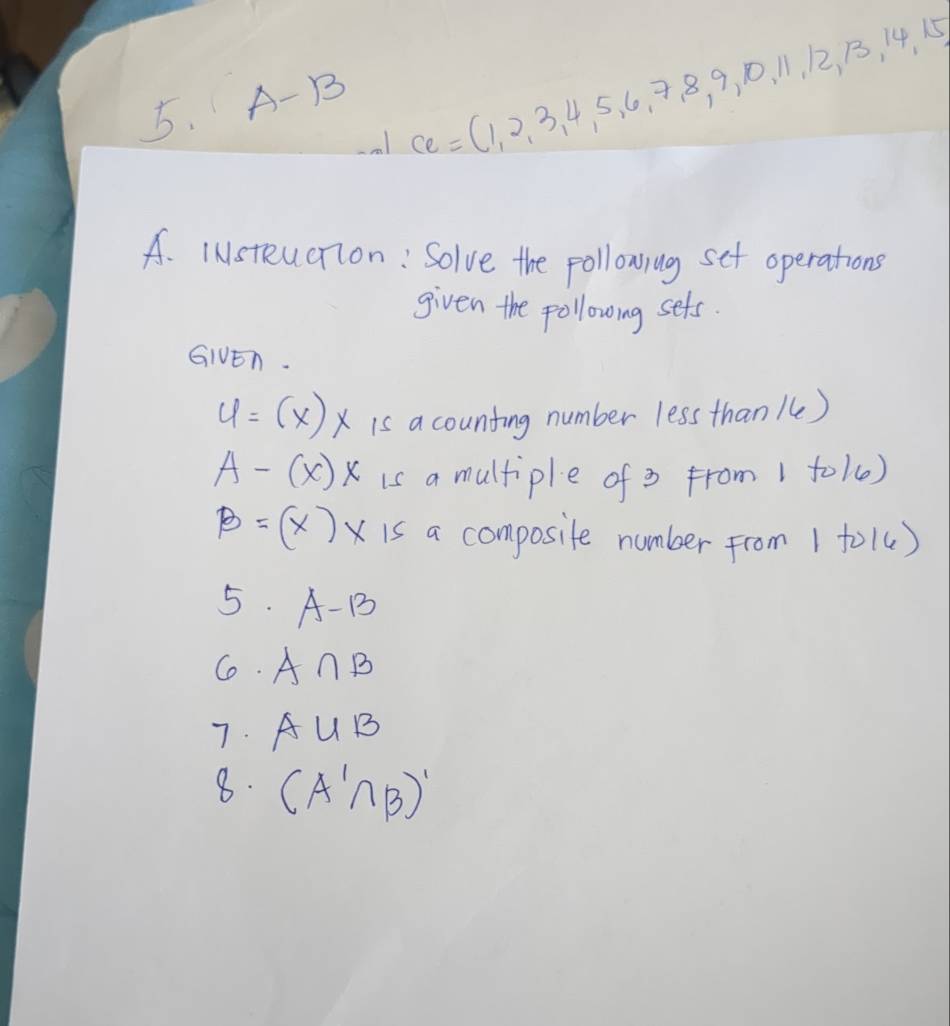 5. A-B
ce = (1, 2, 3, 4, 5, 6, 7, 8, 9, 10, 11, 12, 13, 14, 15,
A. INSTRUCTION : Solve the following set operations
given the following sets.
GIVEN.
U = (x) x is a counting number less than 16)
A - (x) x is a multiple of 3 from 1 to 16)
B = (x) x is a composite number from 1 to 16)
5. A-B
6. A ∩ B
7. A U B
8. (A' ∩ B)'